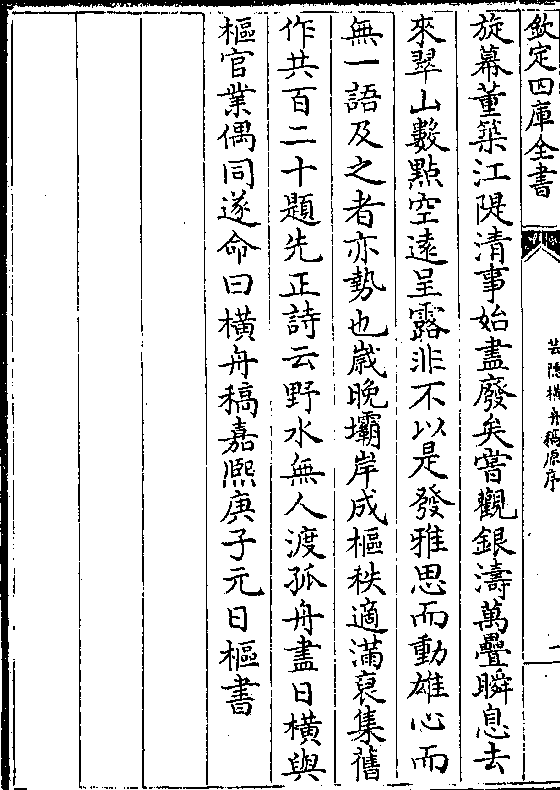 欽定四庫全書
芸隱橫舟稿原序
旋幕董築江隄清事始盡廢矣嘗觀銀濤萬疊瞬息去
來翠山數點空遠呈露非不以是發雅思而動雄心而
無一語及之者亦勢也嵗晚壩岸成樞秩適滿裒集舊
作共百二十題先正詩云野水無人渡孤舟盡日橫與
樞官業偶同遂命曰橫舟稿嘉熙庚子元日樞書